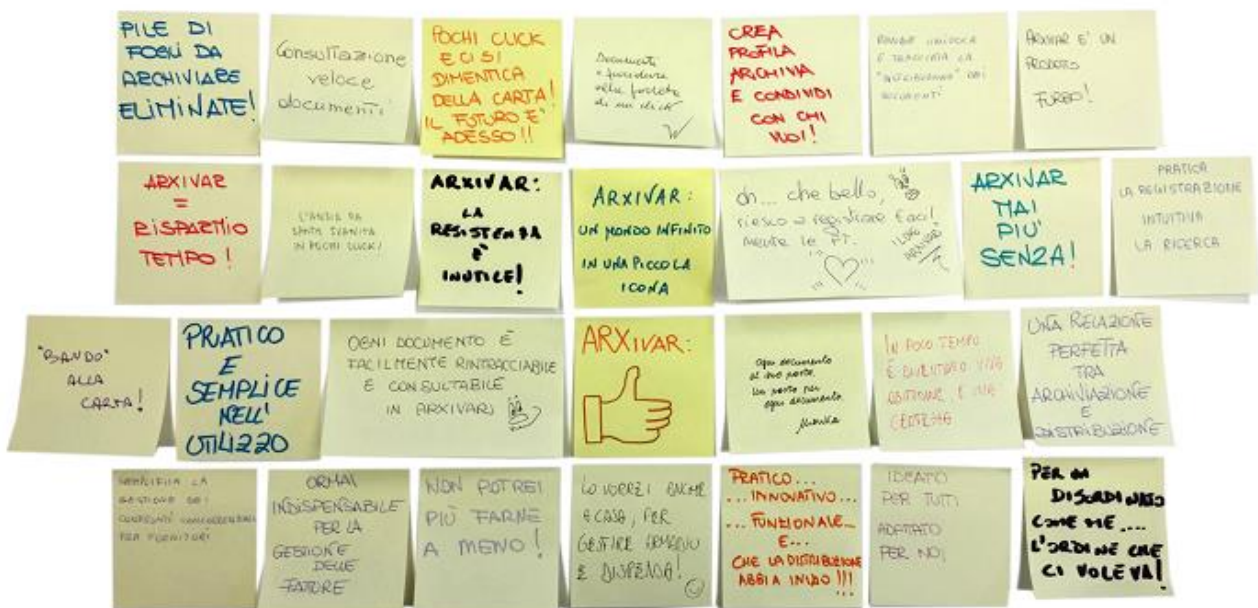 PILE DI
FOGLI DA
ARCHIVIARE
ELIMINATE!
Consultazione
veloce
documenti
POCHI CLICK
E CI SI
DIMENTICA
DELLA CARTA!
IL FUTURO E'
ADESSO!!
Documenti
e procedure
alla portata
di un click
W
CREA
PROFILA
ARCHIVIA
E CONDIVIDI
CON CHI
VUOI!
RENDE UNIVOCA
E TRACCIATA LA
DEI
DOCUMENTI
ARXIVAR E' UN
PRODOTTO
TURBO!
ARXIVAR
=
RISPARMIO
TEMPO!
L'ANSIA DA
SVANITA
IN POCHI CLICK!
ARXIVAR:
LA
RESISTENZA
È
INUTILE!
ARXIVAR:
UN MONDO INFINITO
IN UNA PICCOLA
ICONA
Oh... che bello,
riesco a registrare facil
mente le FT.
I LOVE
ARXIVAR
ARXIVAR
MAI
PIU'
SENZA!
PRATICA
LA REGISTRAZIONE
INTUITIVA
LA RICERCA
"BANDO"
ALLA
CARTA!
PRATICO
E
SEMPLICE
NELL'
UTILIZZO
OGNI DOCUMENTO È
FACILMENTE RINTRACCIABILE
E CONSULTABILE
IN ARXIVAR
ARXIVAR:
Ogni documento
al suo posto.
Un posto per
ogni documento.
Monica
IN POCO TEMPO
È DIVENTATO UNA
E UNA
CERTEZZA
UNA RELAZIONE
PERFETTA
TRA
ARCHIVIAZIONE
E
DISTRIBUZIONE
SEMPLIFICA LA
GESTIONE DEI
PER FORNITORI
ORMAI
INDISPENSABILE
PER LA
GESTIONE
DELLE
FATTURE
NON POTREI
PIÙ FARNE
A MENO!
LO VORREI ANCHE
A CASA, PER
GESTIRE ARMADIO
E DISPENSA!
PRATICO...
...INNOVATIVO...
...FUNZIONALE...
E...
CHE LA DISTRIBUZIONE
ABBIA INIZIO!!!
IDEATO
PER TUTTI
ADATTATO
PER NOI
PER UN
DISORDINATO
COME ME....
L'ORDINE CHE
CI VOLEVA!